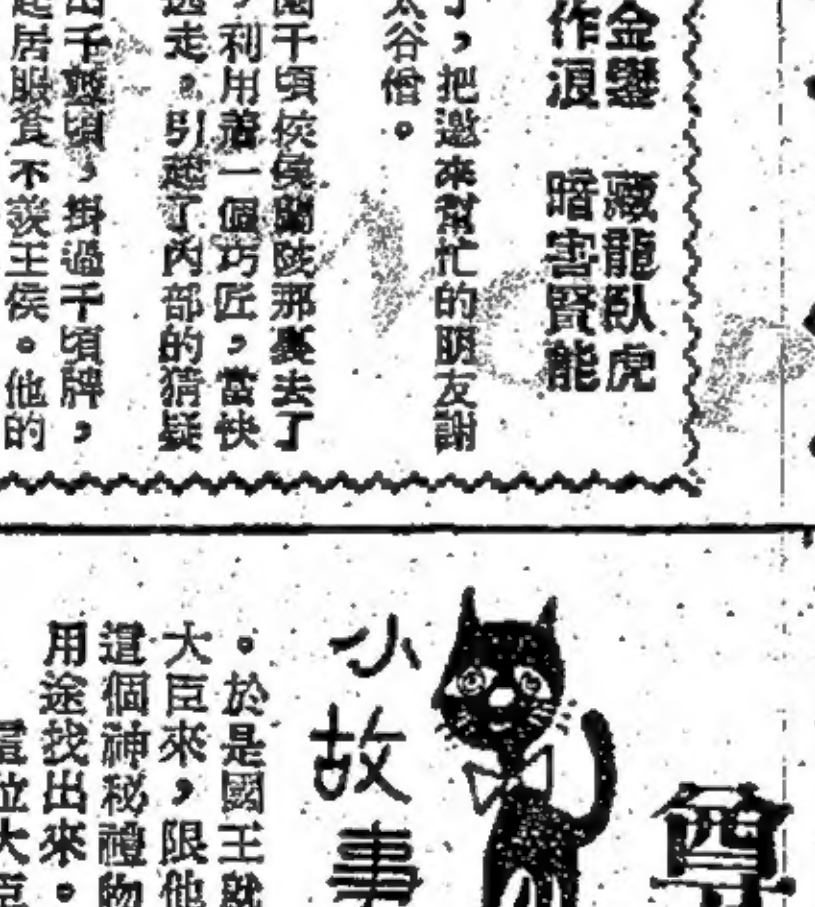 金鑾　藏龍臥虎
作浪　暗害賢能
了，把邀來幫忙的朋友謝
太谷偺。
園千頃侯侯蘭陔那裏去了
，利用着一個巧匠，當快
逃走。引起了內部的猜疑
千頃，掛過千頃牌，
起居服食不羨王侯。他的
尊
小故事
。於是國王就
大臣來，限他
這個神秘禮物
用途找出來。
這位大臣